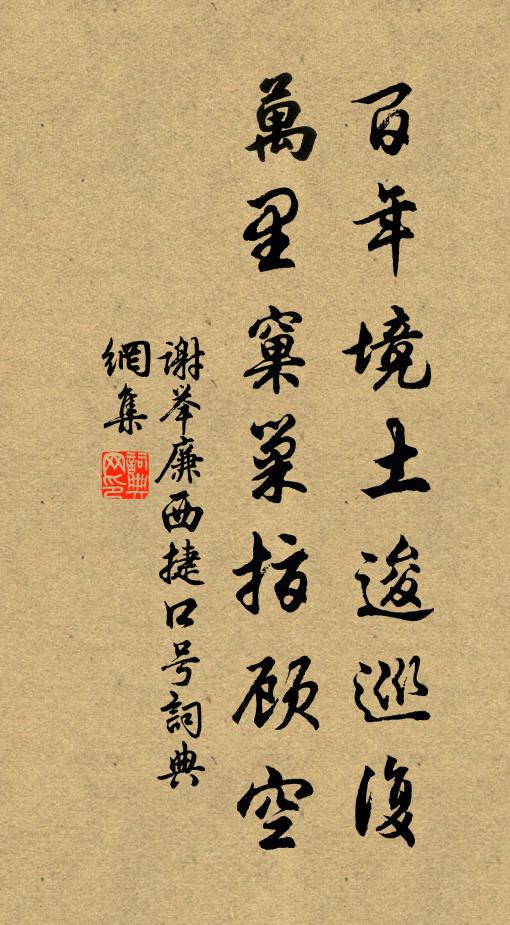 百年境土逡巡復
萬里窠巢指顧空
謝舉廉西捷口号詞典
網集
詞典網印